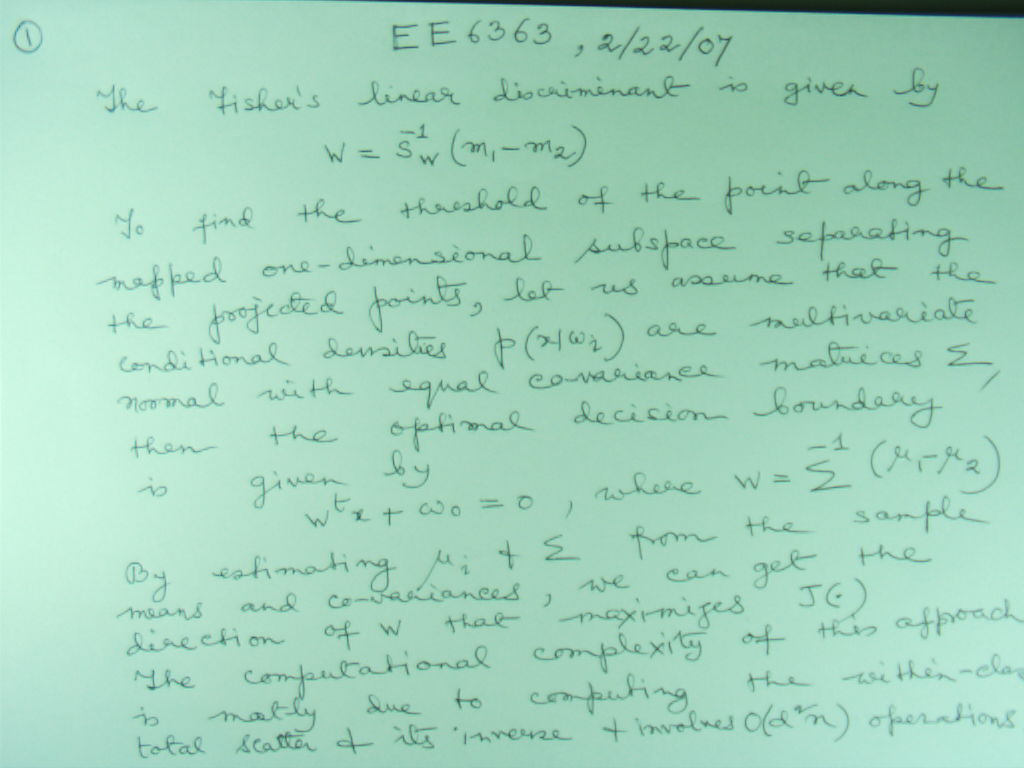 ① EE6363, 2/22/07
The Fisher's linear discriminant is given by
W = S_W^{-1} (m₁ - m₂)
To find the threshold of the point along the
mapped one-dimensional subspace separating
the projected points, let us assume that the
conditional densities p(x|ωᵢ) are multivariate
normal with equal co-variance matrices Σ,
then the optimal decision boundary
is given by
wᵗx + ω₀ = 0, where W = Σ^{-1} (μ₁-μ₂)
By estimating μᵢ & Σ from the sample
means and co-variances, we can get the
direction of W that maximizes J(·)
The computational complexity of this approach
is mostly due to computing the within-clas
total scatter & its inverse & involves O(d²n) operations